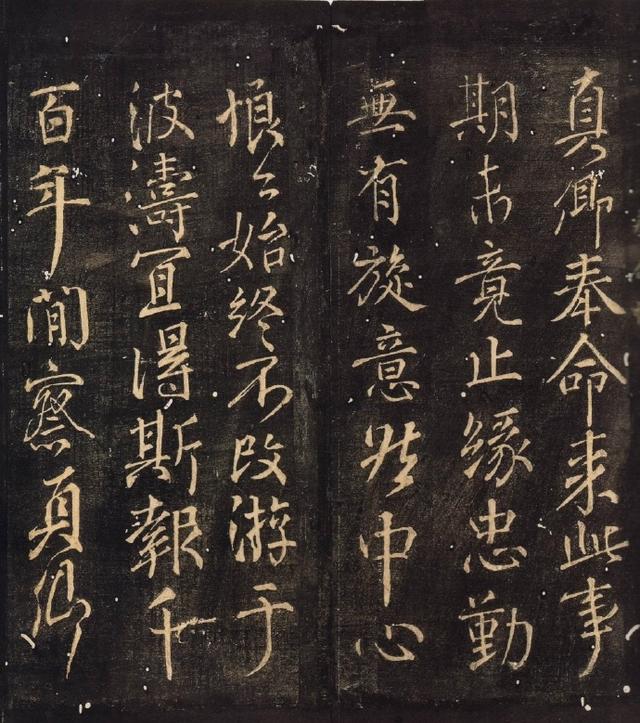 真卿奉命来此事
期未竟止緣忠勤
無有旋意然中心
恨々始終不改游于
波濤宜得斯報千
百年間察真卿